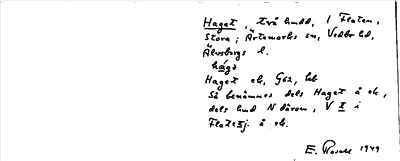 Haget, två hudd, I Flaten,
Stora; Ärtemarks sn, Vedbo hd,
Älvsborgs l.
hágə
Haget ek, G62, beb
Så benämnes dels Haget å ek,
dels hud N därom, V I i
Flatesj. å ek.
E. 1949